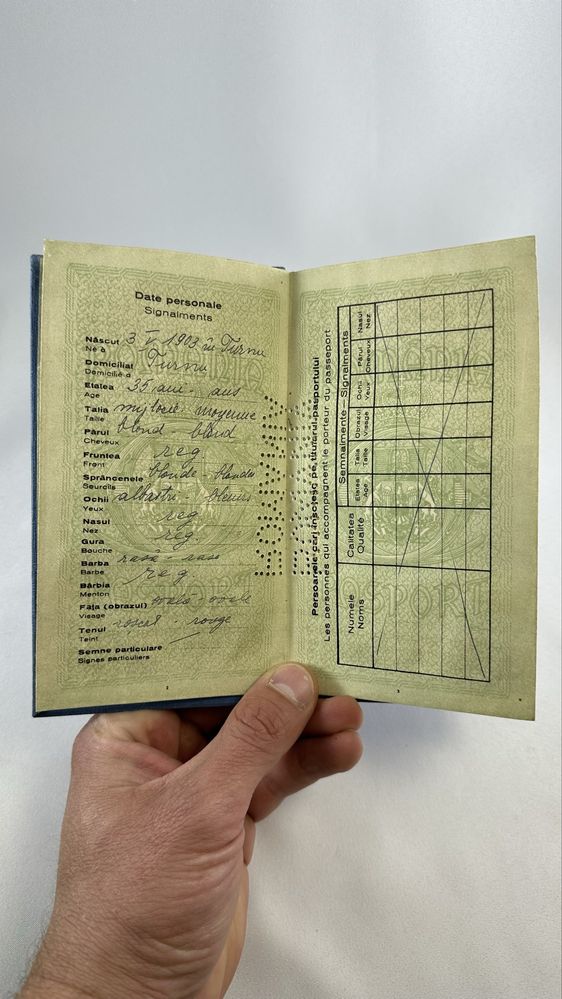 Date personale
Signalments
Născut 3 V 1903 în Turnu
Né à
Domiciliat Turnu
Domicilié à
Etatea 35 ani - ans
Age
Talia mijlocie moyenne
Taille
Părul blond - blond
Cheveux
Fruntea reg
Front
Sprâncenele blonde - blondes
Sourcils
Ochii albaștri - bleues
Yeux
Nasul reg
Nez
Gura reg.
Bouche
Barba rasă rase
Barbe
Bărbia reg
Menton
Fața (obrazul) ovală - ovale
Visage
Tenul roșcat - rouge
Teint
Semne particulare
Signes particuliers
2
Persoanele cari însoțesc pe titularul pașaportului
Les personnes qui accompagnent le porteur du passeport
Numele
Noms
Calitatea
Qualité
Semnalmente - Signalments
Etatea
Age
Talia
Taille
Obrazul
Visage
Ochii
Yeux
Părul
Cheveux
Nasul
Nez
3